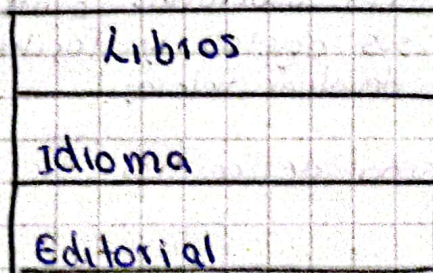 Libros
Idioma
Editorial